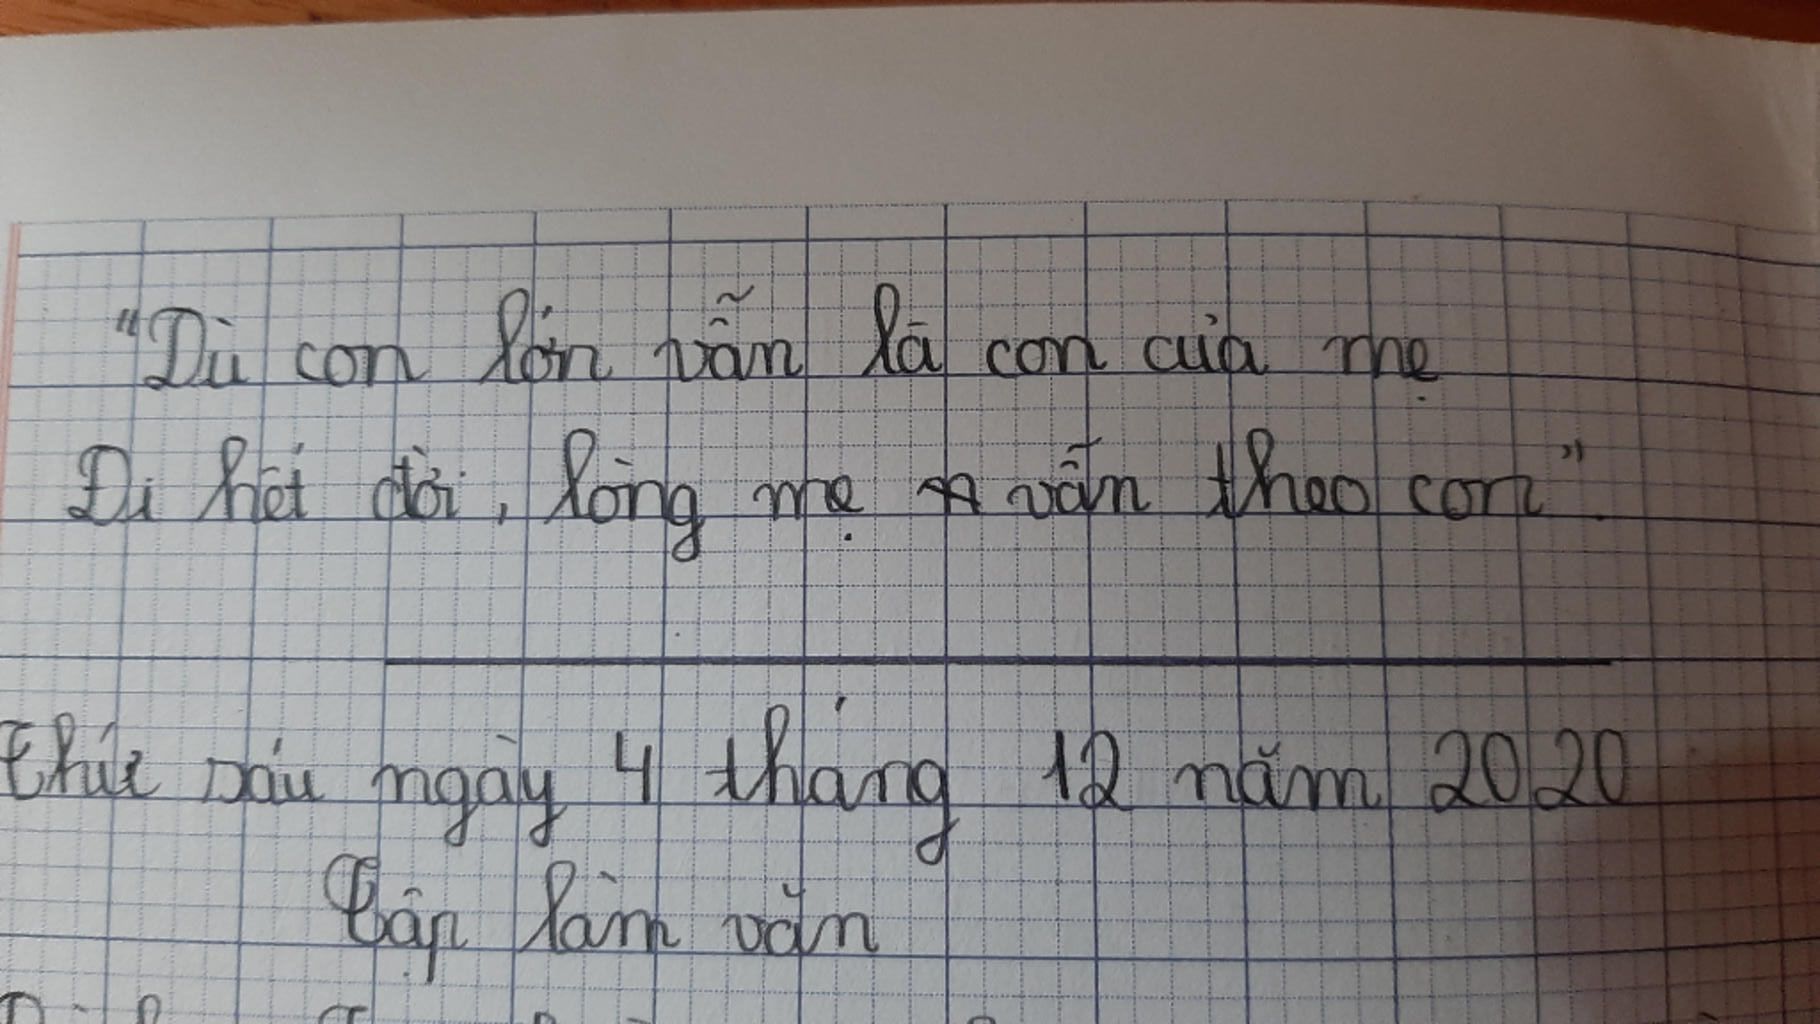 "Dù con lớn vẫn là con của mẹ
Đi hết đời, lòng mẹ vẫn theo con"
Thứ sáu ngày 4 tháng 12 năm 2020
Tập làm văn